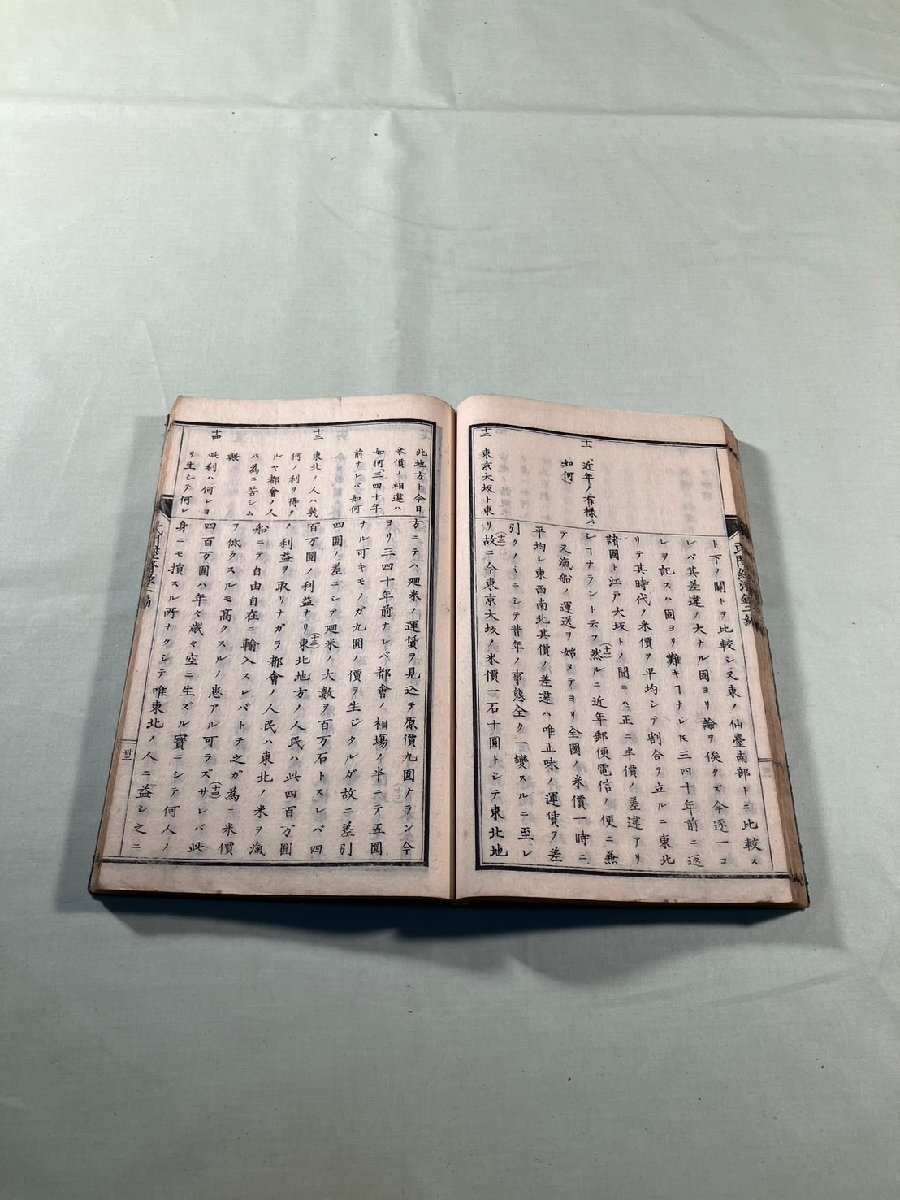 十一
近年ノ有様ハ
如何
十二
東京大坂ト東
ト下ノ關トヲ比較シ又東ノ仙臺南部トニ比較ス
レバ其差違ノ大ナル固ヨリ論ヲ俟タズ今逐一コ
レヲ記スハ固ヨリ難キヿナレ𪜈三四十年前ニ返
リテ其時代ノ米價ヲ平均シテ割合ヲ立ルニ東北
諸國ト江戸大坂トノ間ニハ正ニ半價ノ差違アリ
シヿナラント云フ(十一)然ルニ近年郵便電信ノ便ニ兼
テ又滊船ノ運送ヲ始メテヨリ全國ノ米價一時ニ
平均シ東西南北其價ノ差違ハ唯正味ノ運賃ヲ差
引クノミニシテ昔年ノ事態全ク一變スルニ至レ
リ(十二)故ニ今東京大坂ノ米價一石十圓トシテ東北地
北地方ト今日
米價ノ相違ハ
如何三四十年
前ナレバ如何
十三
東北ノ人ハ幾
何ノ利ヲ得タ
ルヤ都會ノ人
ハ為ニ苦シム
歟
十四
此利ハ何レヨ
リ生シテ何レ
方ニテハ廻米ノ運賃ヲ見込テ原價九圓ナラン今
ヨリ三四十年前ナレバ都會ノ相場ノ半ニテ五圓
ナル可キモノガ九圓ノ價ヲ生ジタルガ故ニ差引
四圓ノ差ニシテ廻米ノ大數ヲ百万石トスレバ四
百万圓ノ利益ナリ(十三)東北地方ノ人民ハ此四百万圓
ノ利益ヲ取リナガラ都會ノ人民ハ東北ノ米ヲ滊
船ニテ自由自在ニ輸入スレバトテ之ガ為ニ米價
ヲ低クスルモ高クスルノ患アル可ラズ(十四)サレバ此
四百万圓ハ年々歳々空ニ生ズル寶ニシテ何人ノ
身ニモ損スル所ナクシテ唯東北ノ人ニ益シ之ニ